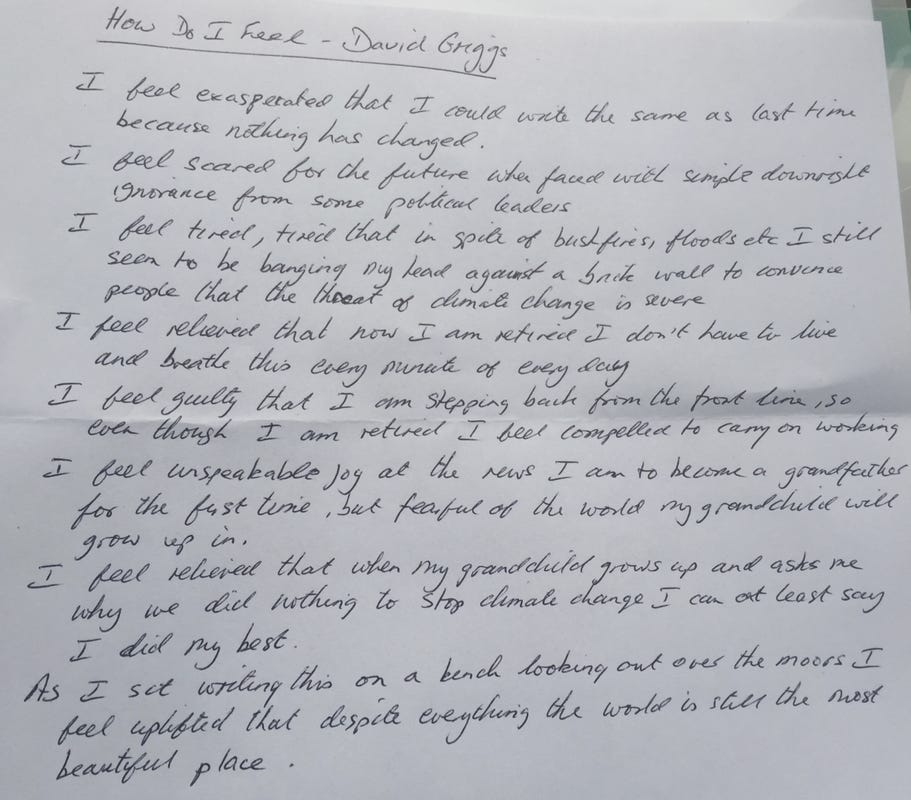 How Do I Feel - David Griggs
I feel exasperated that I could write the same as last time
because nothing has changed.
I feel scared for the future when faced with simple downright
ignorance from some political leaders
I feel tired, tired that in spite of bushfires, floods etc I still
seem to be banging my head against a brick wall to convince
people that the threat of climate change is severe
I feel relieved that now I am retired I don't have to live
and breathe this every minute of every day
I feel guilty that I am stepping back from the front line, so
even though I am retired I feel compelled to carry on working
I feel unspeakable joy at the news I am to become a grandfather
for the first time, but fearful of the world my grandchild will
grow up in.
I feel relieved that when my grandchild grows up and asks me
why we did nothing to stop climate change I can at least say
I did my best.
As I sit writing this on a bench looking out over the moors I
feel uplifted that despite everything the world is still the most
beautiful place.